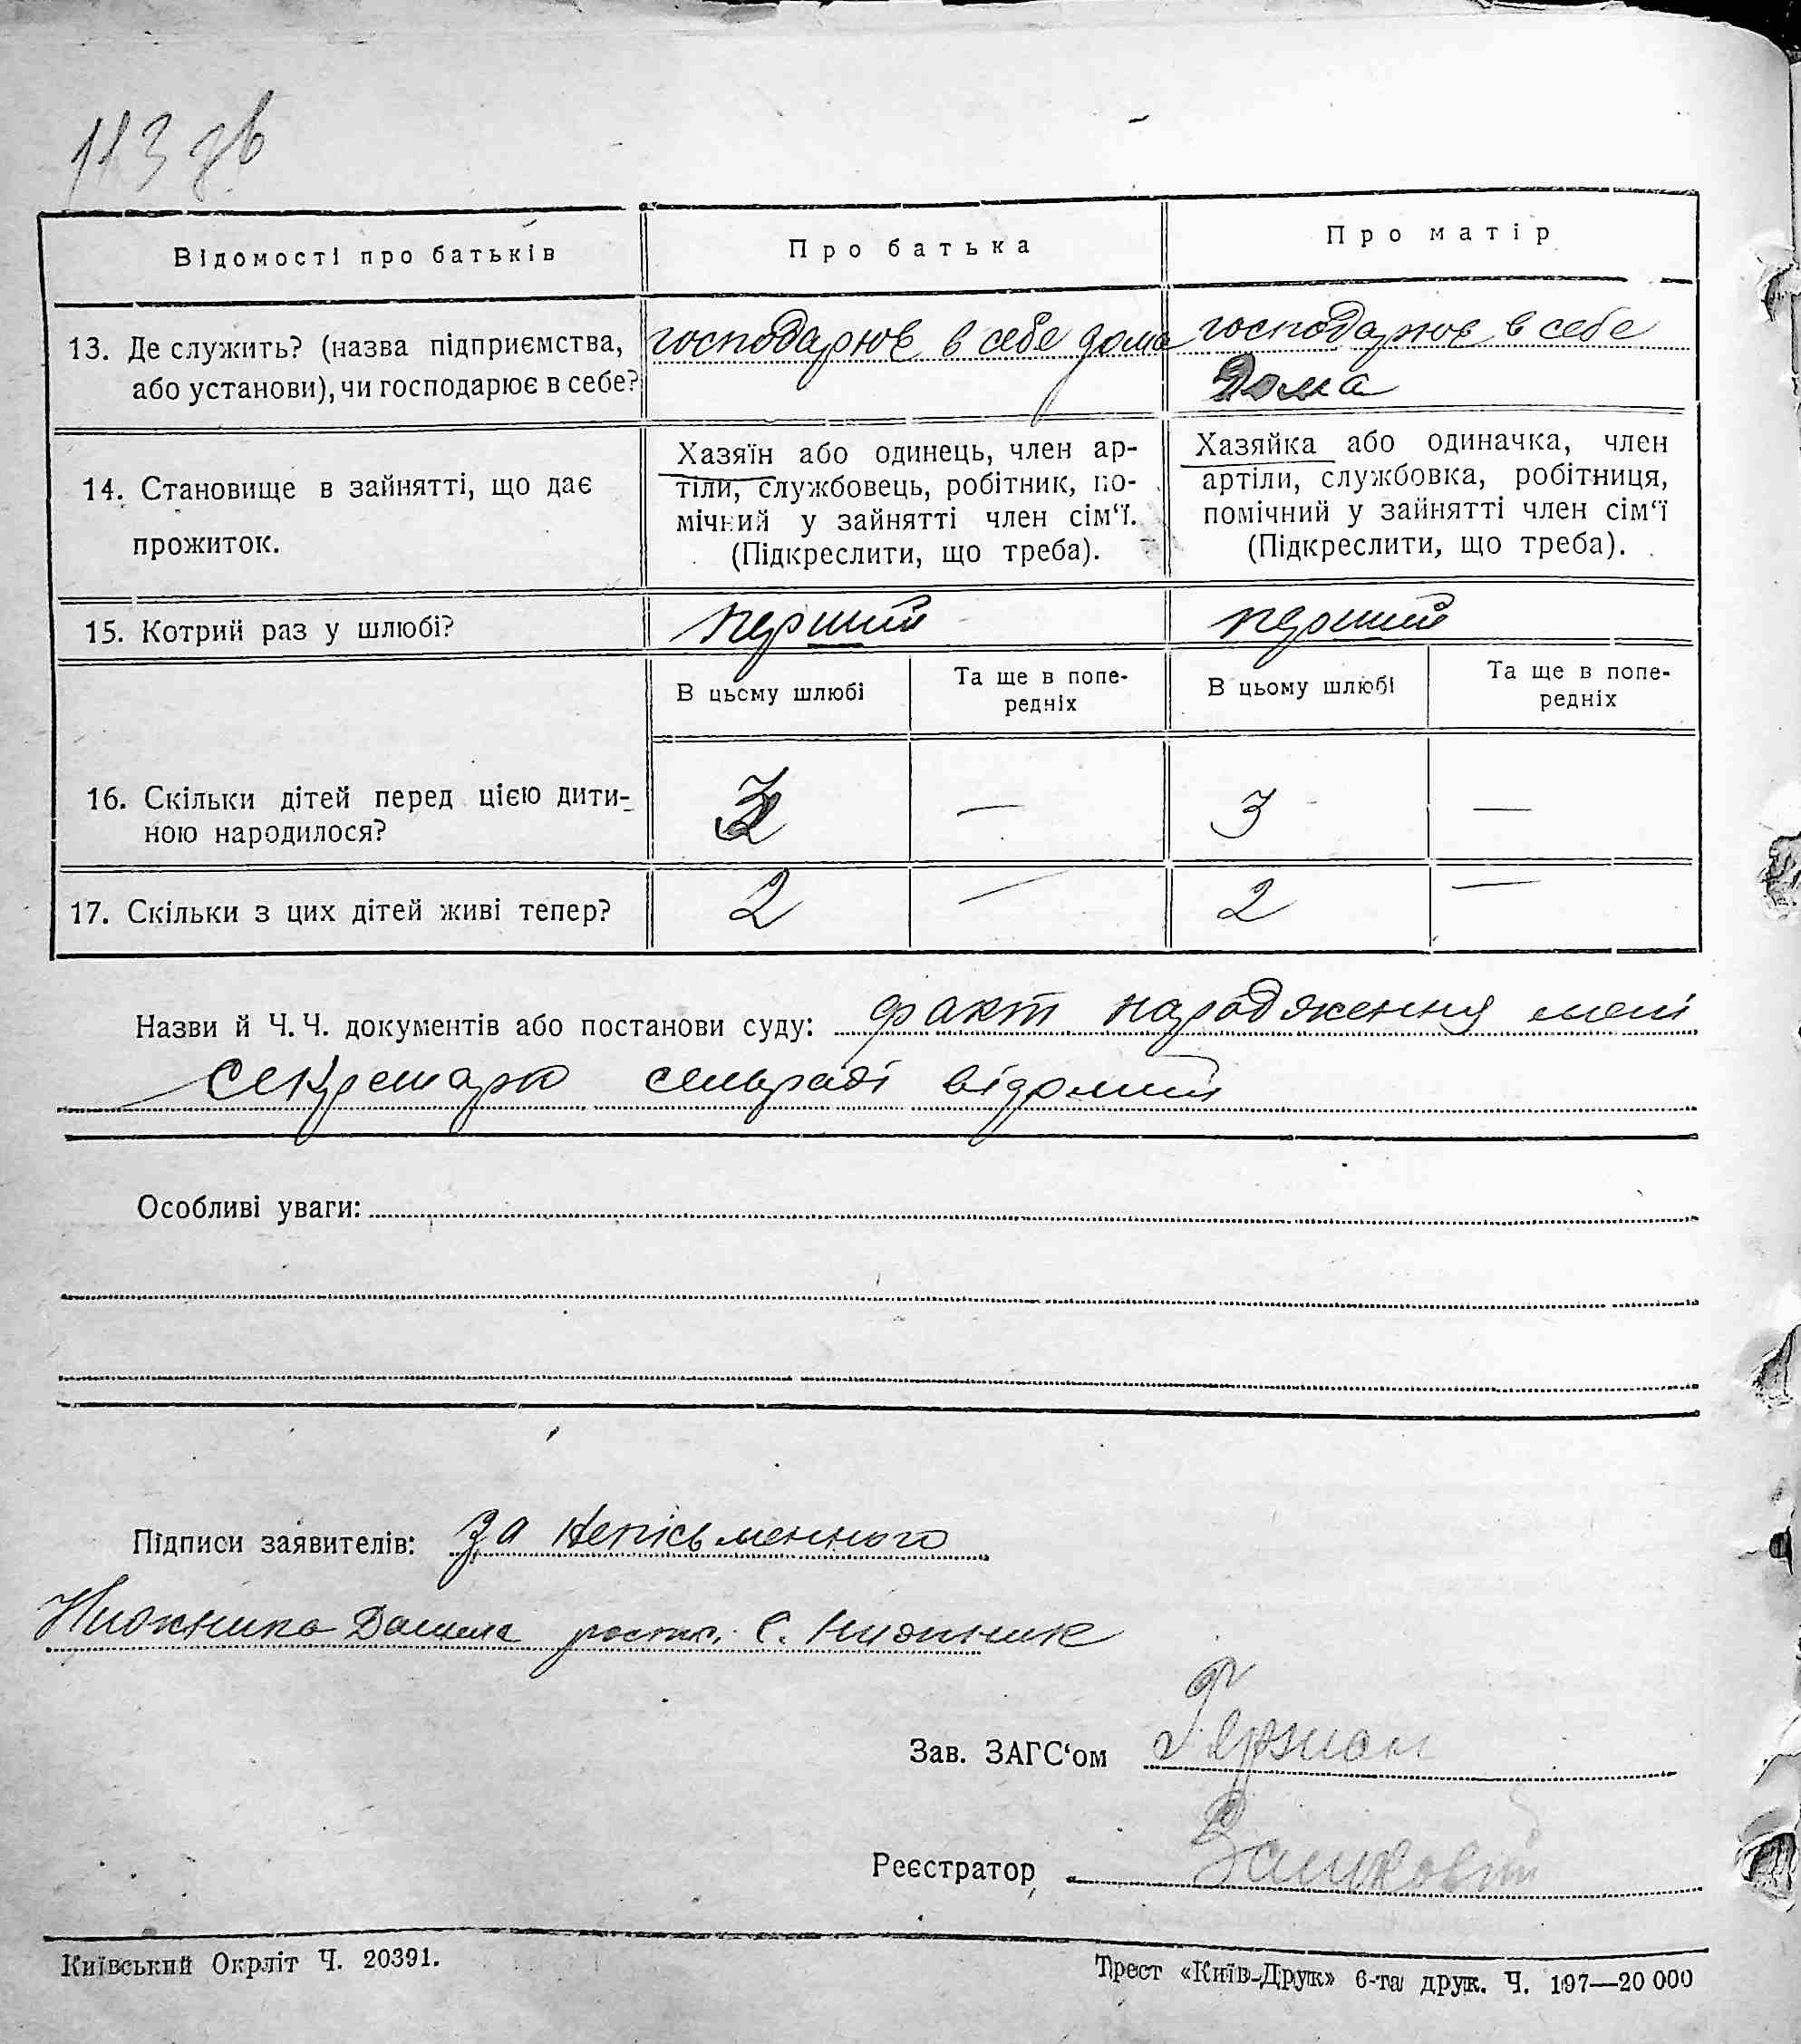 113 зв
Відомості про батьків
Про батька
Про матір
13. Де служить? (назва підприємства,
або установи), чи господарює в себе?
господарює в себе дома
господарює в себе
Дома
14. Становище в зайнятті, що дає
прожиток.
Хазяїн або одинець, член ар-
тіли, службовець, робітник, по-
мічний у зайнятті член сім‘ї.
(Підкреслити, що треба).
Хазяйка або одиначка, член
артіли, службовка, робітниця,
помічний у зайнятті член сім‘ї
(Підкреслити, що треба).
15. Котрий раз у шлюбі?
перший
перший
В цьому шлюбі
Та ще в попе-
редніх
В цьому шлюбі
Та ще в попе-
редніх
16. Скільки дітей перед цією дити-
ною народилося?
3
—
3
—
17. Скільки з цих дітей живі тепер?
2
—
2
—
Назви й Ч. Ч. документів або постанови суду: факт народження мені
секретарю сельраді відомий
Особливі уваги:
Підписи заявителів: За непісьменного
Нижника Данила роспис. С. Нижник
Зав. ЗАГС‘ом
Реєстратор
Київський Окрліт Ч. 20391.
Трест «Київ-Друк» 6-та друк. Ч. 197—20 000